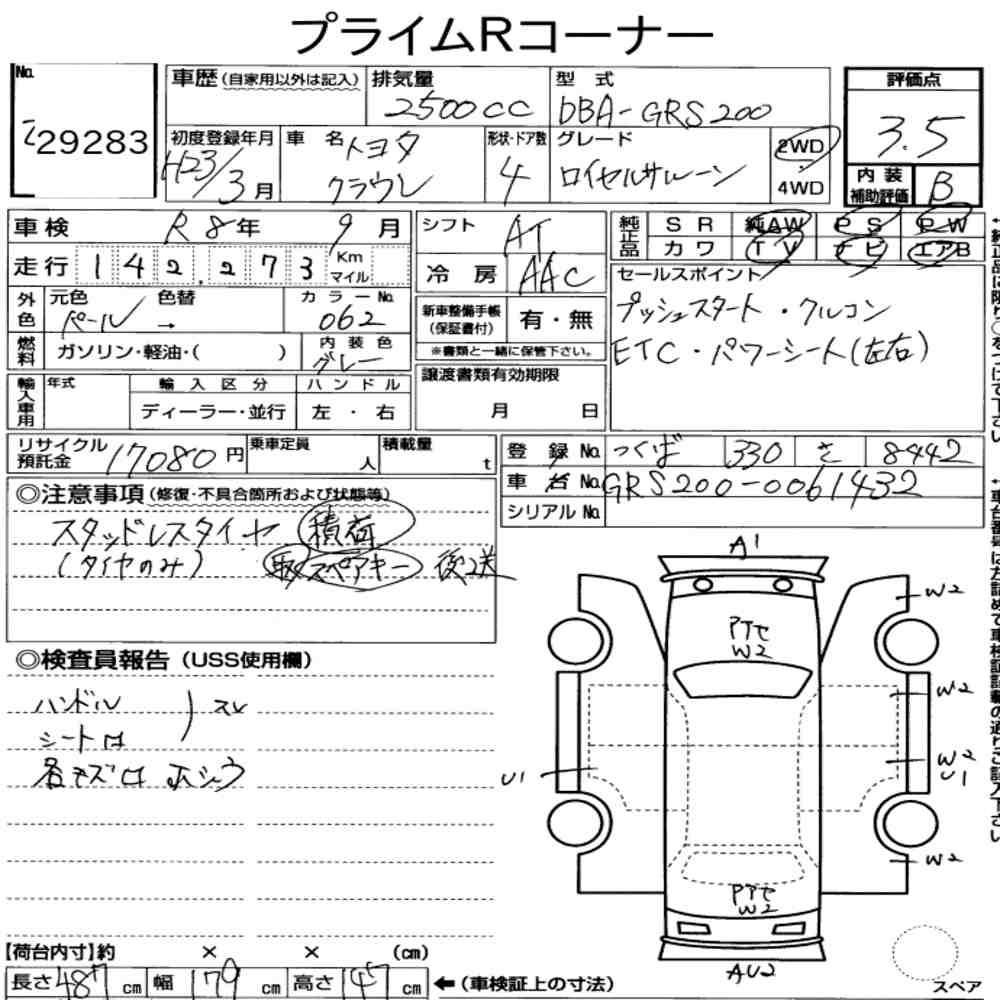 プライムRコーナー
No.
29283
車歴 (自家用以外は記入)
排気量
2500cc
型式
DBA-GRS200
評価点
3.5
初度登録年月
H23/3月
車名
トヨタ
クラウン
形状・ドア数
4
グレード
ロイヤルサルーン
2WD
4WD
内装
補助評価
B
車検 R8年 9月
走行 142,273 Km
マイル
シフト AT
冷房 AAC
純正品
SR 純AW PS PW
カワ TV ナビ エアB
セールスポイント
プッシュスタート・クルコン
ETC・パワーシート(左右)
外色
元色 パール
色替 →
カラーNo.
062
燃料
ガソリン・軽油・( )
内装色
グレー
新車整備手帳
(保証書付)
有・無
※書類と一緒に保管下さい。
譲渡書類有効期限
月 日
輸入車用
年式
輸入区分
ディーラー・並行
ハンドル
左・右
リサイクル
預託金 17080円
乗車定員 人
積載量 t
登録No. つくば 330 さ 8442
車台No. GRS200-0061432
シリアルNo.
◎注意事項 (修復・不具合箇所および状態等)
スタッドレスタイヤ 積荷
(タイヤのみ) 取 スペアキー 後送
◎検査員報告 (USS使用欄)
ハンドル
シートロ
スレ
A1
W2
PTセ
W2
W2
W2
U1
U1
W2
PTセ
W2
AU2
スペア
【荷台内寸】約 × × (cm)
長さ487cm 幅179cm 高さ147cm ←(車検証上の寸法)